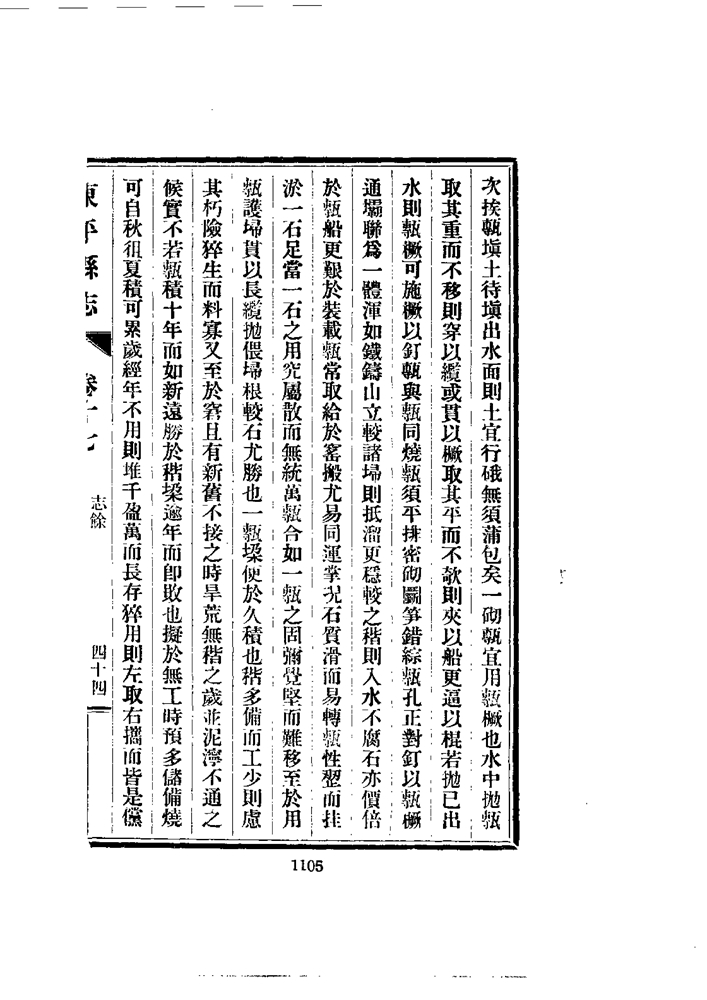 次挨甎塡土待塡出水面則土宜行硪無須蒲包矣一砌甎宜用甎橛也水中拋甎
取其重而不移則穿以纜或貫以橛取其平而不欹則夾以船更逼以棍若拋已出
水則甎橛可施橛以釘甎與甎同燒甎須平排密砌鬭笋錯綜甎孔正對釘以甎橛
通壩聯爲一體渾如鐵鑄山立較諸埽則抵溜更穩較之稭則入水不腐石亦價倍
於甎船更艱於裝載甎常取給於窰搬尤易同運掌況石質滑而易轉甎性澀而挂
淤一石足當一石之用究屬散而無統萬甎合如一甎之固彌覺堅而難移至於用
甎護埽貫以長纜拋偎埽根較石尤勝也一甎垜便於久積也稭多備而工少則慮
其朽險猝生而料寡又至於窘且有新舊不接之時旱荒無稭之歲並泥濘不通之
候實不若甎積十年而如新遠勝於稭垜逾年而卽敗也擬於無工時預多儲備燒
可自秋徂夏積可累歲經年不用則堆千盈萬而長存猝用則左取右攜而皆是儻
東平縣志 卷十七 志餘 四十四
1105